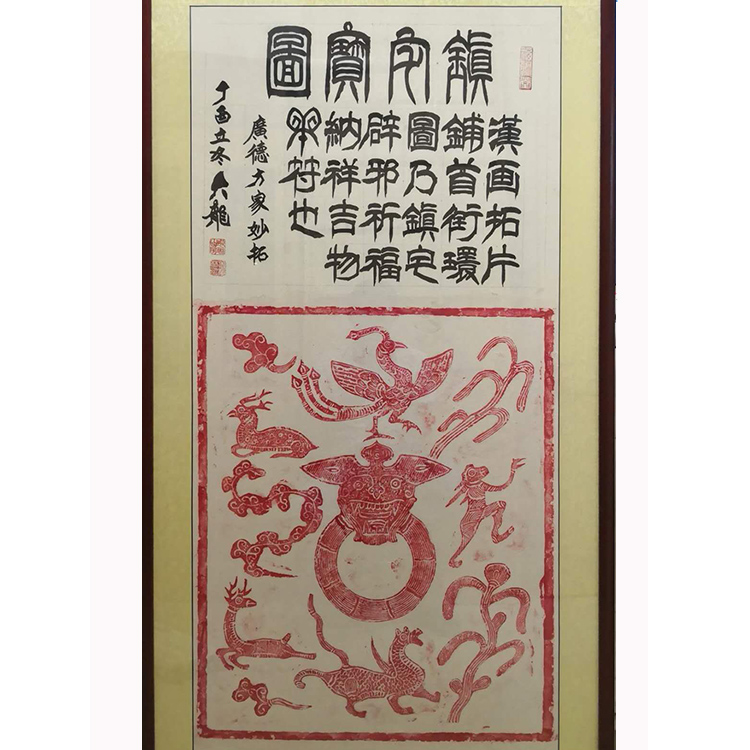 鎮宅寶圖
漢画拓片
鋪首銜環
圖乃鎮宅
辟邪祈福
納祥吉物
符也
廣德方家妙拓
丁酉立冬 龍